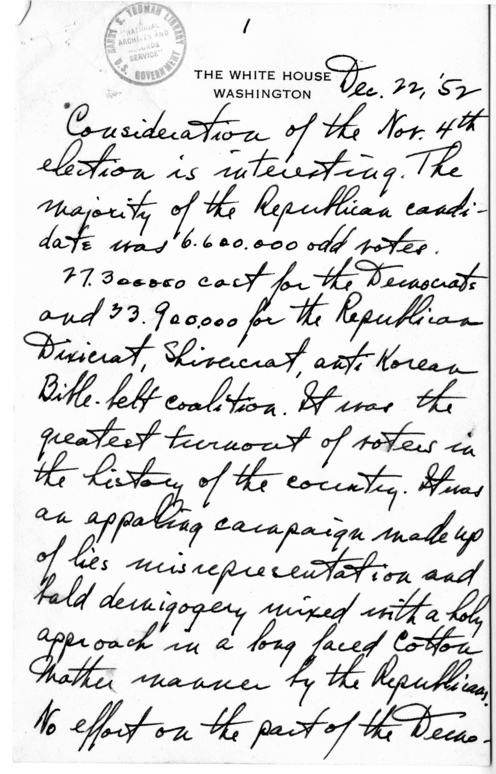 1
HARRY S. TRUMAN LIBRARY
"NATIONAL
ARCHIVES AND
RECORDS
SERVICE"
U.S. GOVERNMENT
THE WHITE HOUSE
WASHINGTON
Dec. 22, '52
Consideration of the Nov. 4th
election is interesting. The
majority of the Republican candi-
date was 6.600.000 odd votes.
27.300000 cast for the Democrats
and 33.900.000 for the Republican
Dixicrat, Shivercrat, anti Korean
Bible-belt coalition. It was the
greatest turnout of voters in
the history of the country. It was
an appalling campaign made up
of lies misrepresentation and
bald demigogery mixed with a holy
approach in a long faced Cotton
Mather manner by the Republicans.
No effort on the part of the Demo-